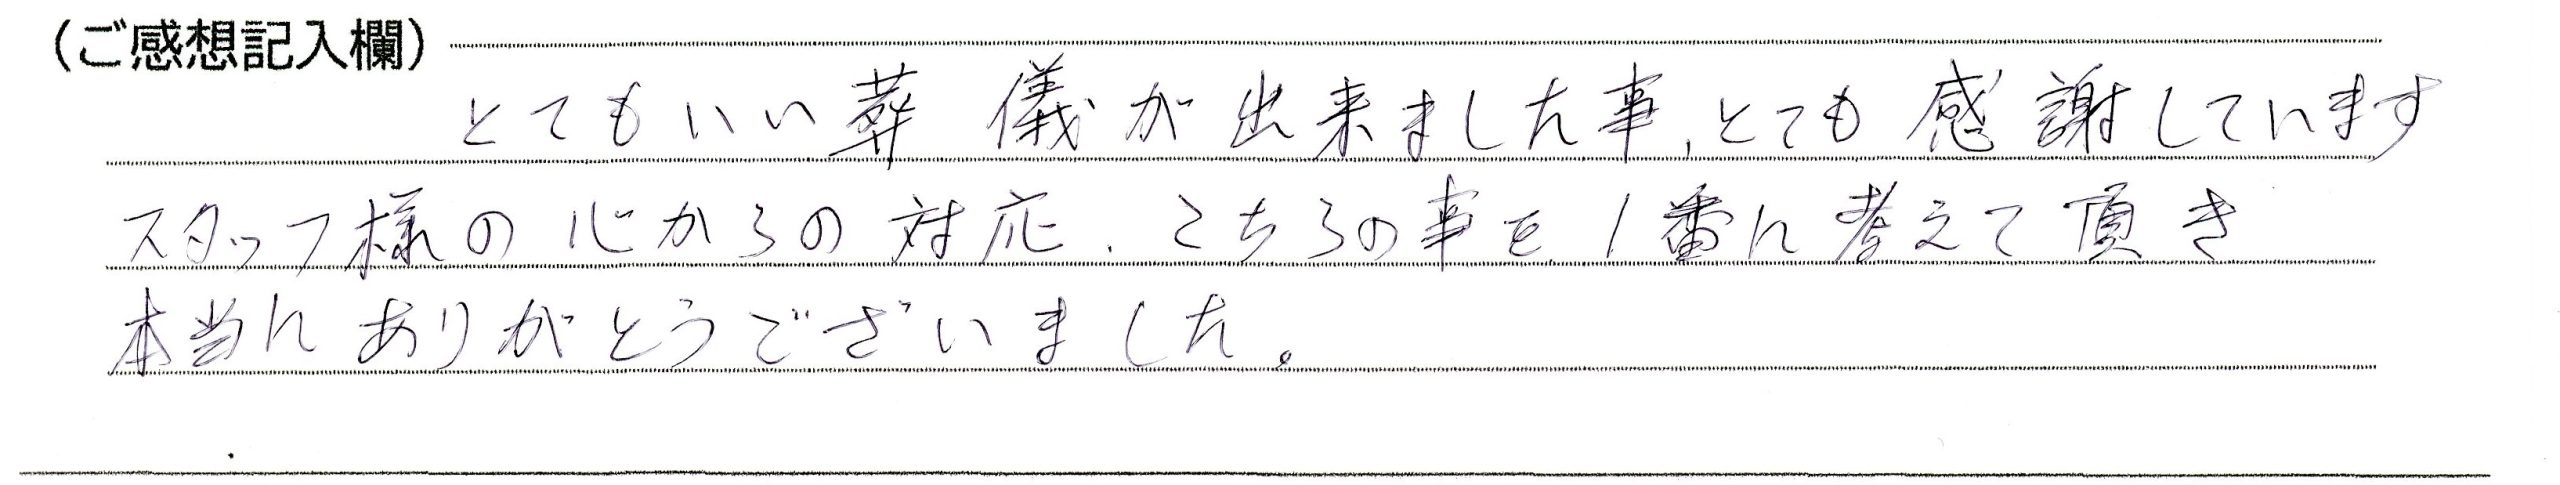 (ご感想記入欄)
とてもいい葬儀が出来ました事、とても感謝しています
スタッフ様の心からの対応、こちらの事を1番に考えて頂き
本当にありがとうございました。